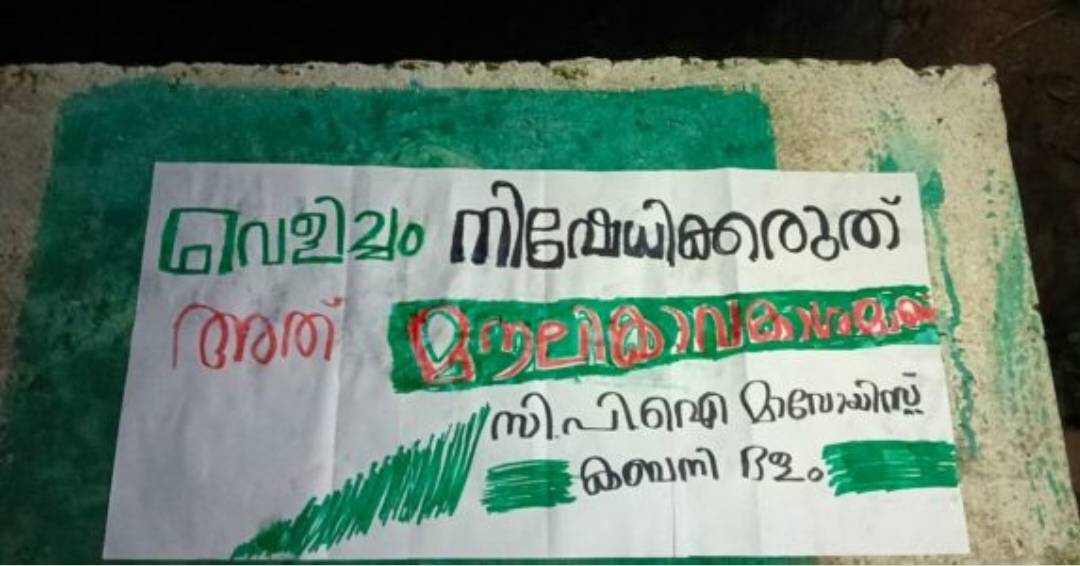 വെളിച്ചം നിഷേധിക്കരുത്
അത് മൗലികാവകാശമാണ്
സി.പി.ഐ മാവോയിസ്റ്റ്
കബനി ദളം